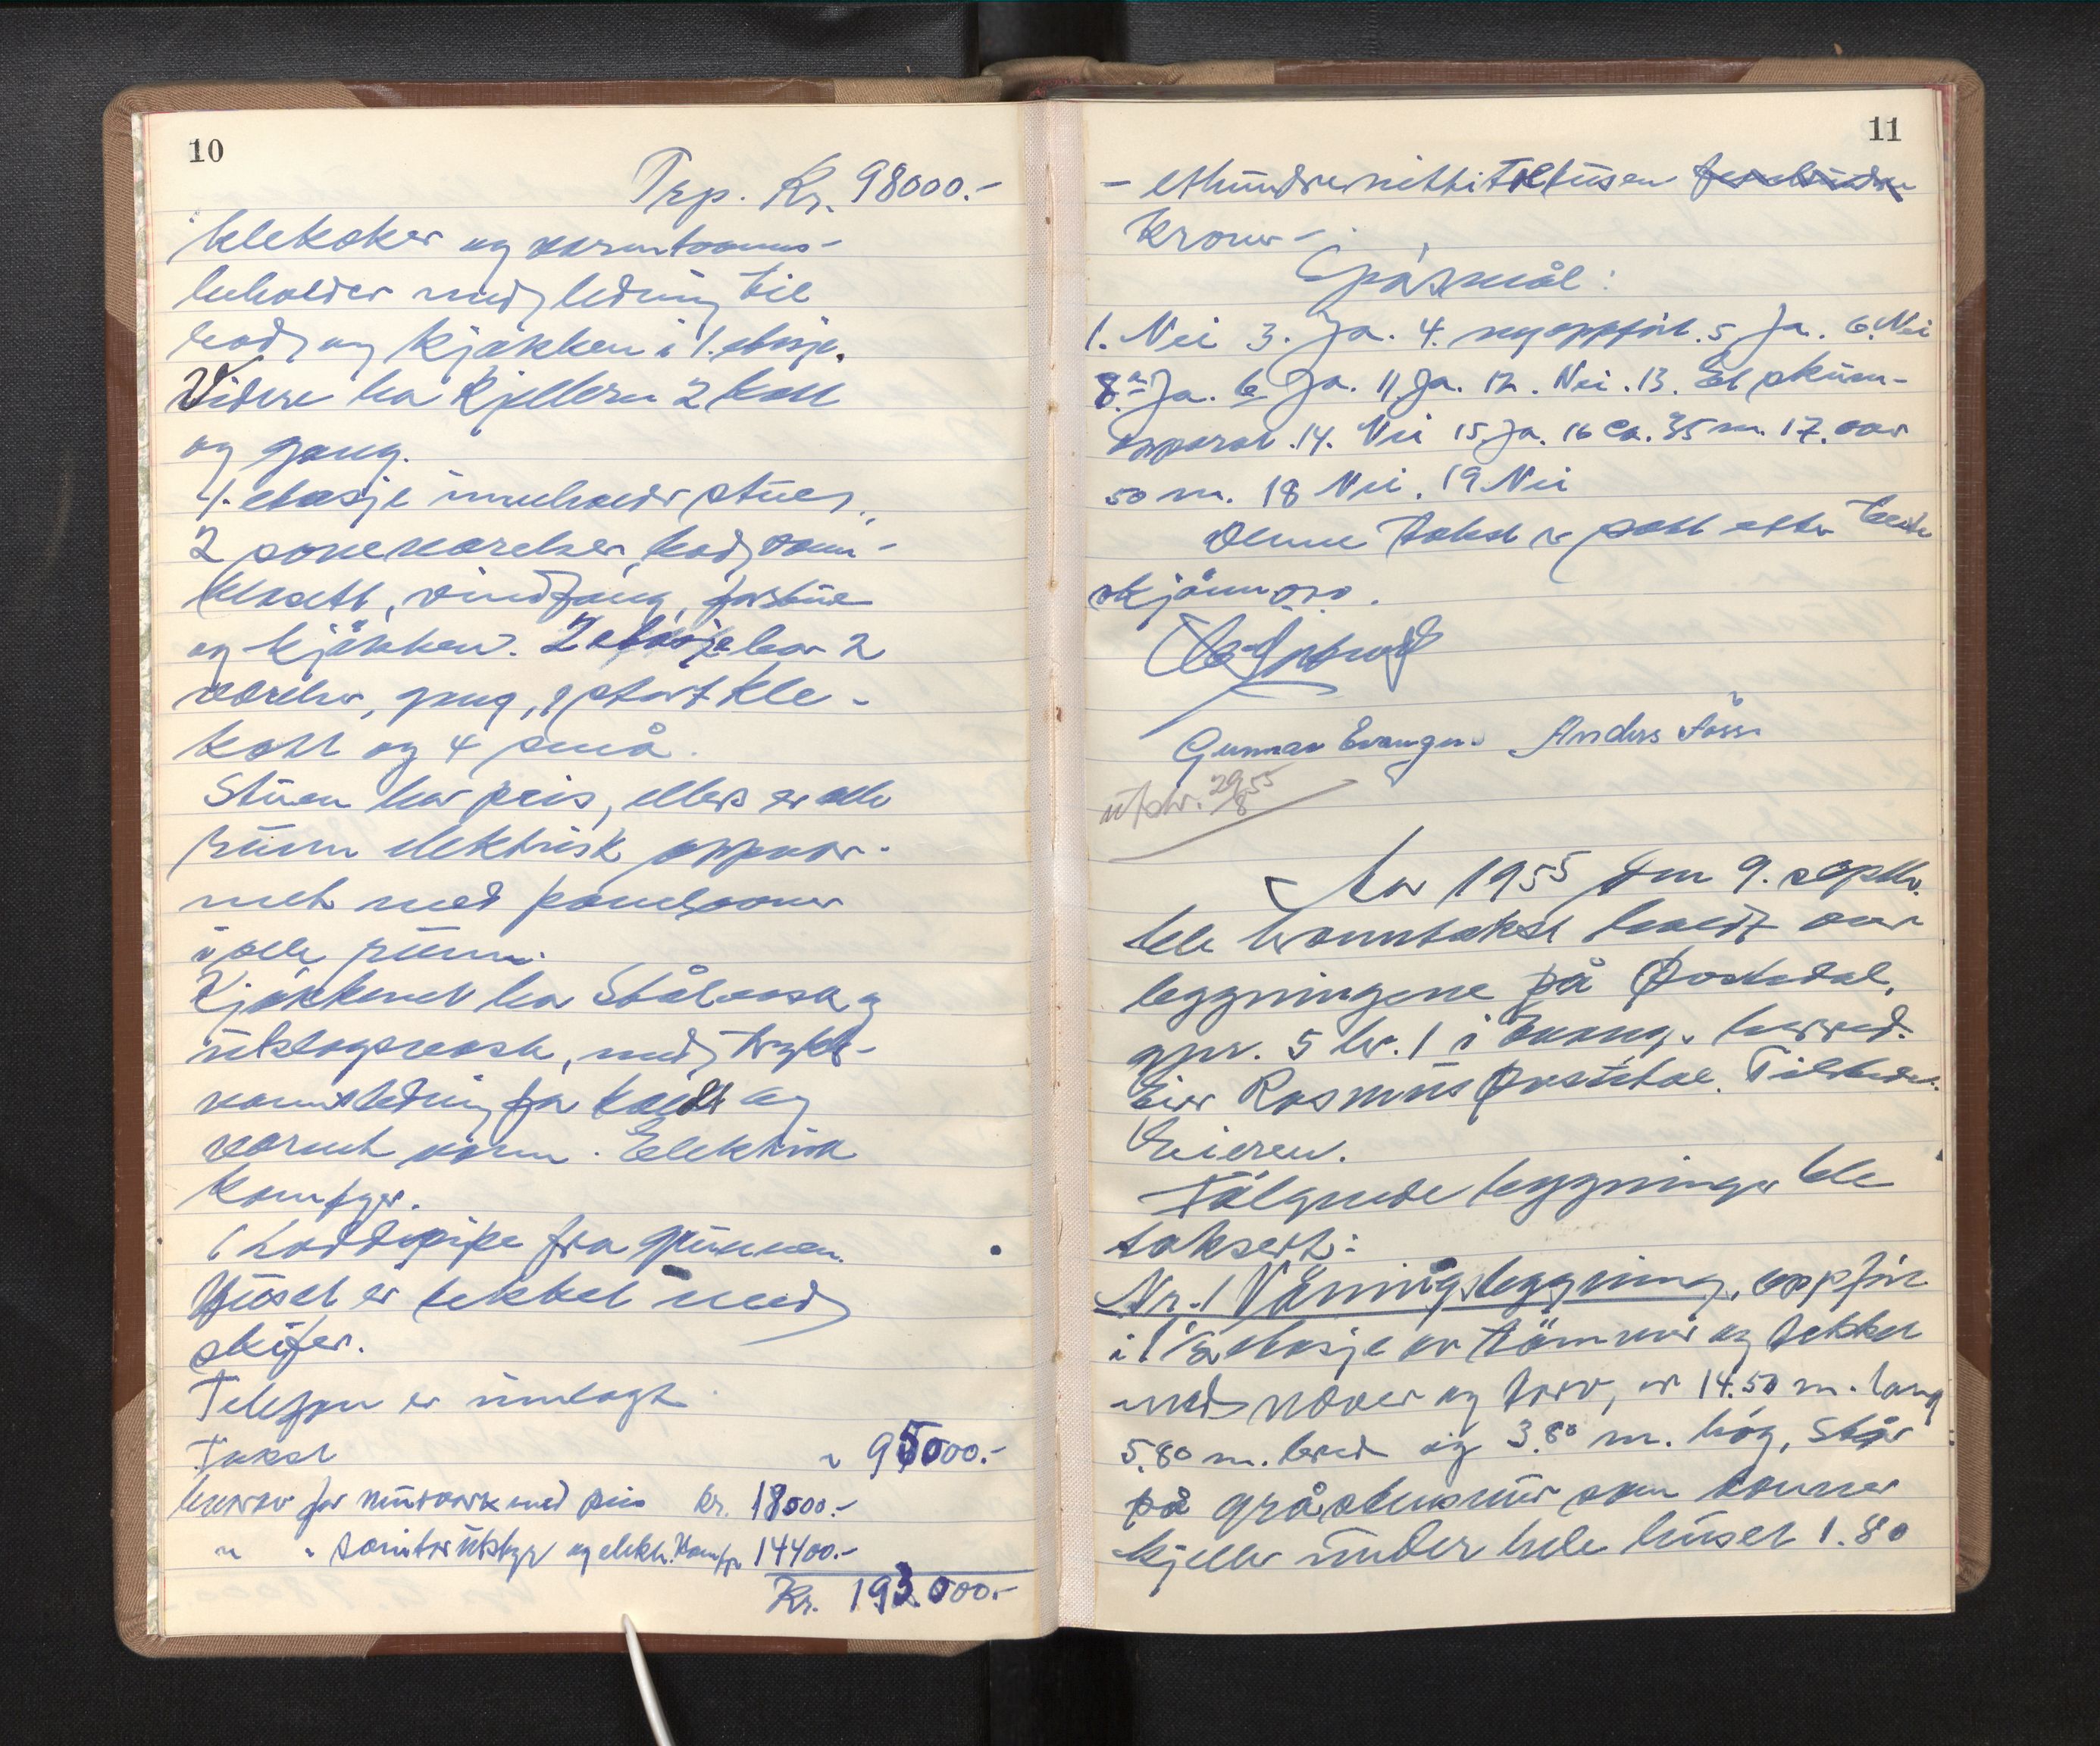 10
Trp. Kr. 98000.-
klekoker og varmtvanns-
beholder med ledning til
bad og kjøkken i 1. etasje.
Videre har kjelleren 2 kott
og gang.
1. etasje inneholder stuer,
2 soveværelser, bad, vann-
klosett, vindfang, forstue
og kjøkken. 2 etasje har 2
værelser, gang, 1 stort kle-
kott og 4 små.
Stuen har peis, ellers er alle
rum elektrisk oppvar-
met med panelovner
i alle rum.
Kjøkkenet har Stålvask og
utslagsvask, med trykk-
vannsledning for kaldt og
varmt vann. Elektrisk
komfyr.
1 Loddpipe fra grunnen.
Huset er tekket med
skifer.
Telefon er innlagt.
Takst " 95000.-
herav for murverk med peis kr. 18000.-
" " sanitærutstyr og elektr. Komfyr 14400.-
Kr. 193.000.-
11
- ethundrenittitretusen
kroner -
Spørsmål:
1. Nei 3. Ja. 4. nyoppført. 5 Ja. 6. Nei
8. a Ja. b Ja. 11. Ja. 12. Nei. 13. Et skum-
apparat. 14. Nei 15 Ja. 16 ca. 35 m. 17. over
50 m. 18 Nei. 19 Nei
Denne takst er satt etter beste
skjønn
Gunnar Evanger Anders
utskr. 29/8 55
År 1955 den 9. septbr.
ble branntakst holdt over
bygningene på Øvstedal,
gnr. 5 br. 1 i Evang. herred.
Eier Rasmus Øvstedal. Tilstede:
Eieren.
Følgende bygninger ble
taksert:
Nr. 1 Våningsbygning, oppført
i 1 1/2 etasje av tømmer og tekket
med never og torv, er 14.50 m. lang
5.80 m. bred og 3.80 m. høg, Står
på gråstensmur som danner
kjeller under hele huset 1.80